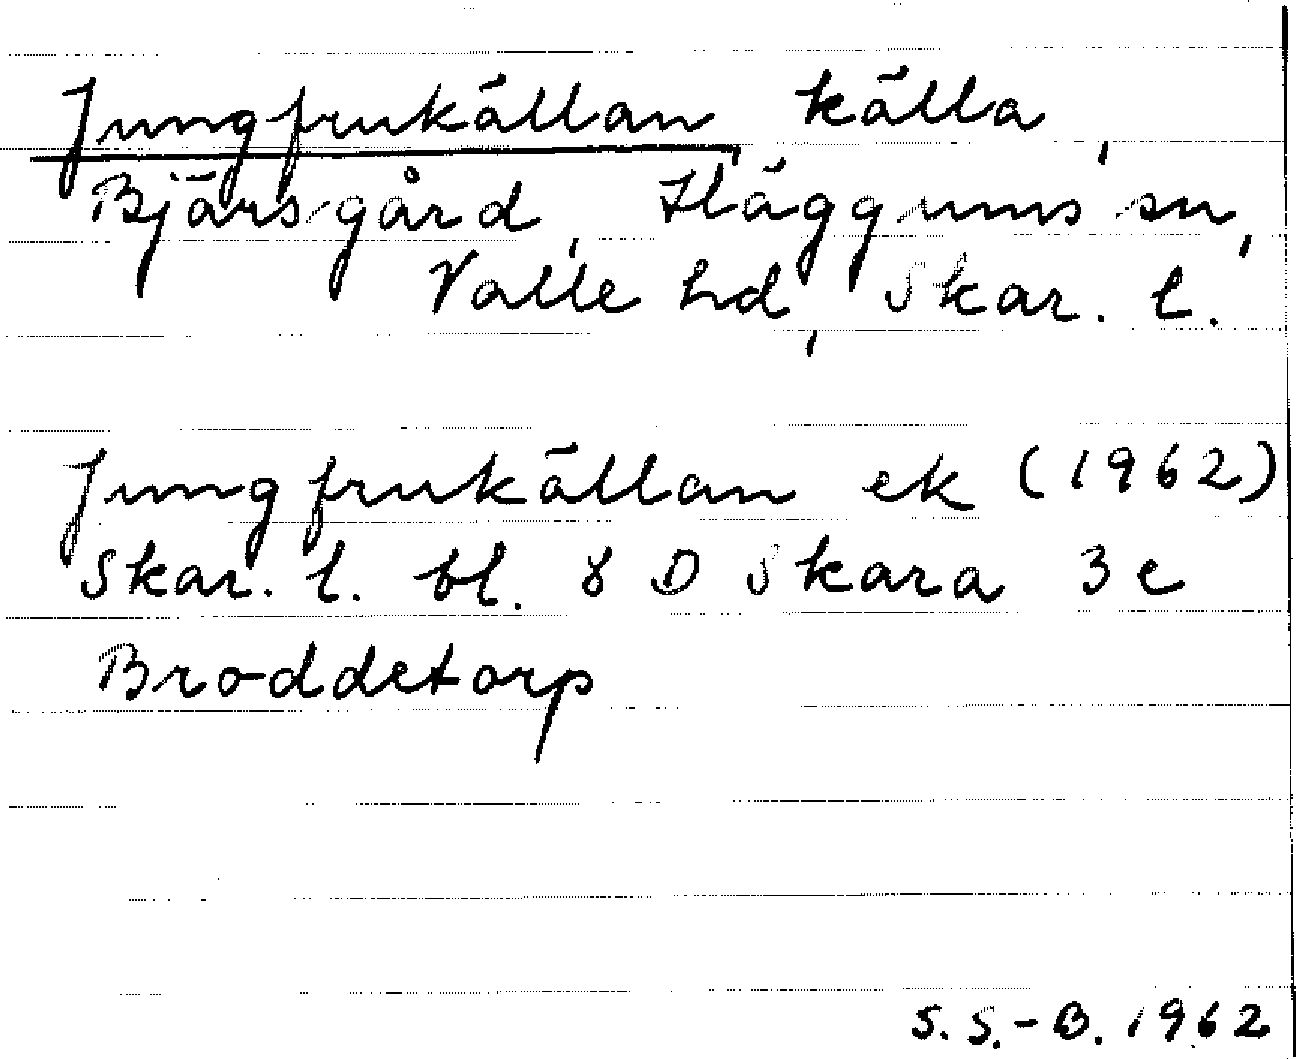 Jungfrukällan, källa,
Bjärsgård, Häggums sn,
Valle hd, Skar. l.
Jungfrukällan ek (1962)
Skar. l. bl. 8 D Skara 3 e
Broddetorp
S. S.-B. 1962